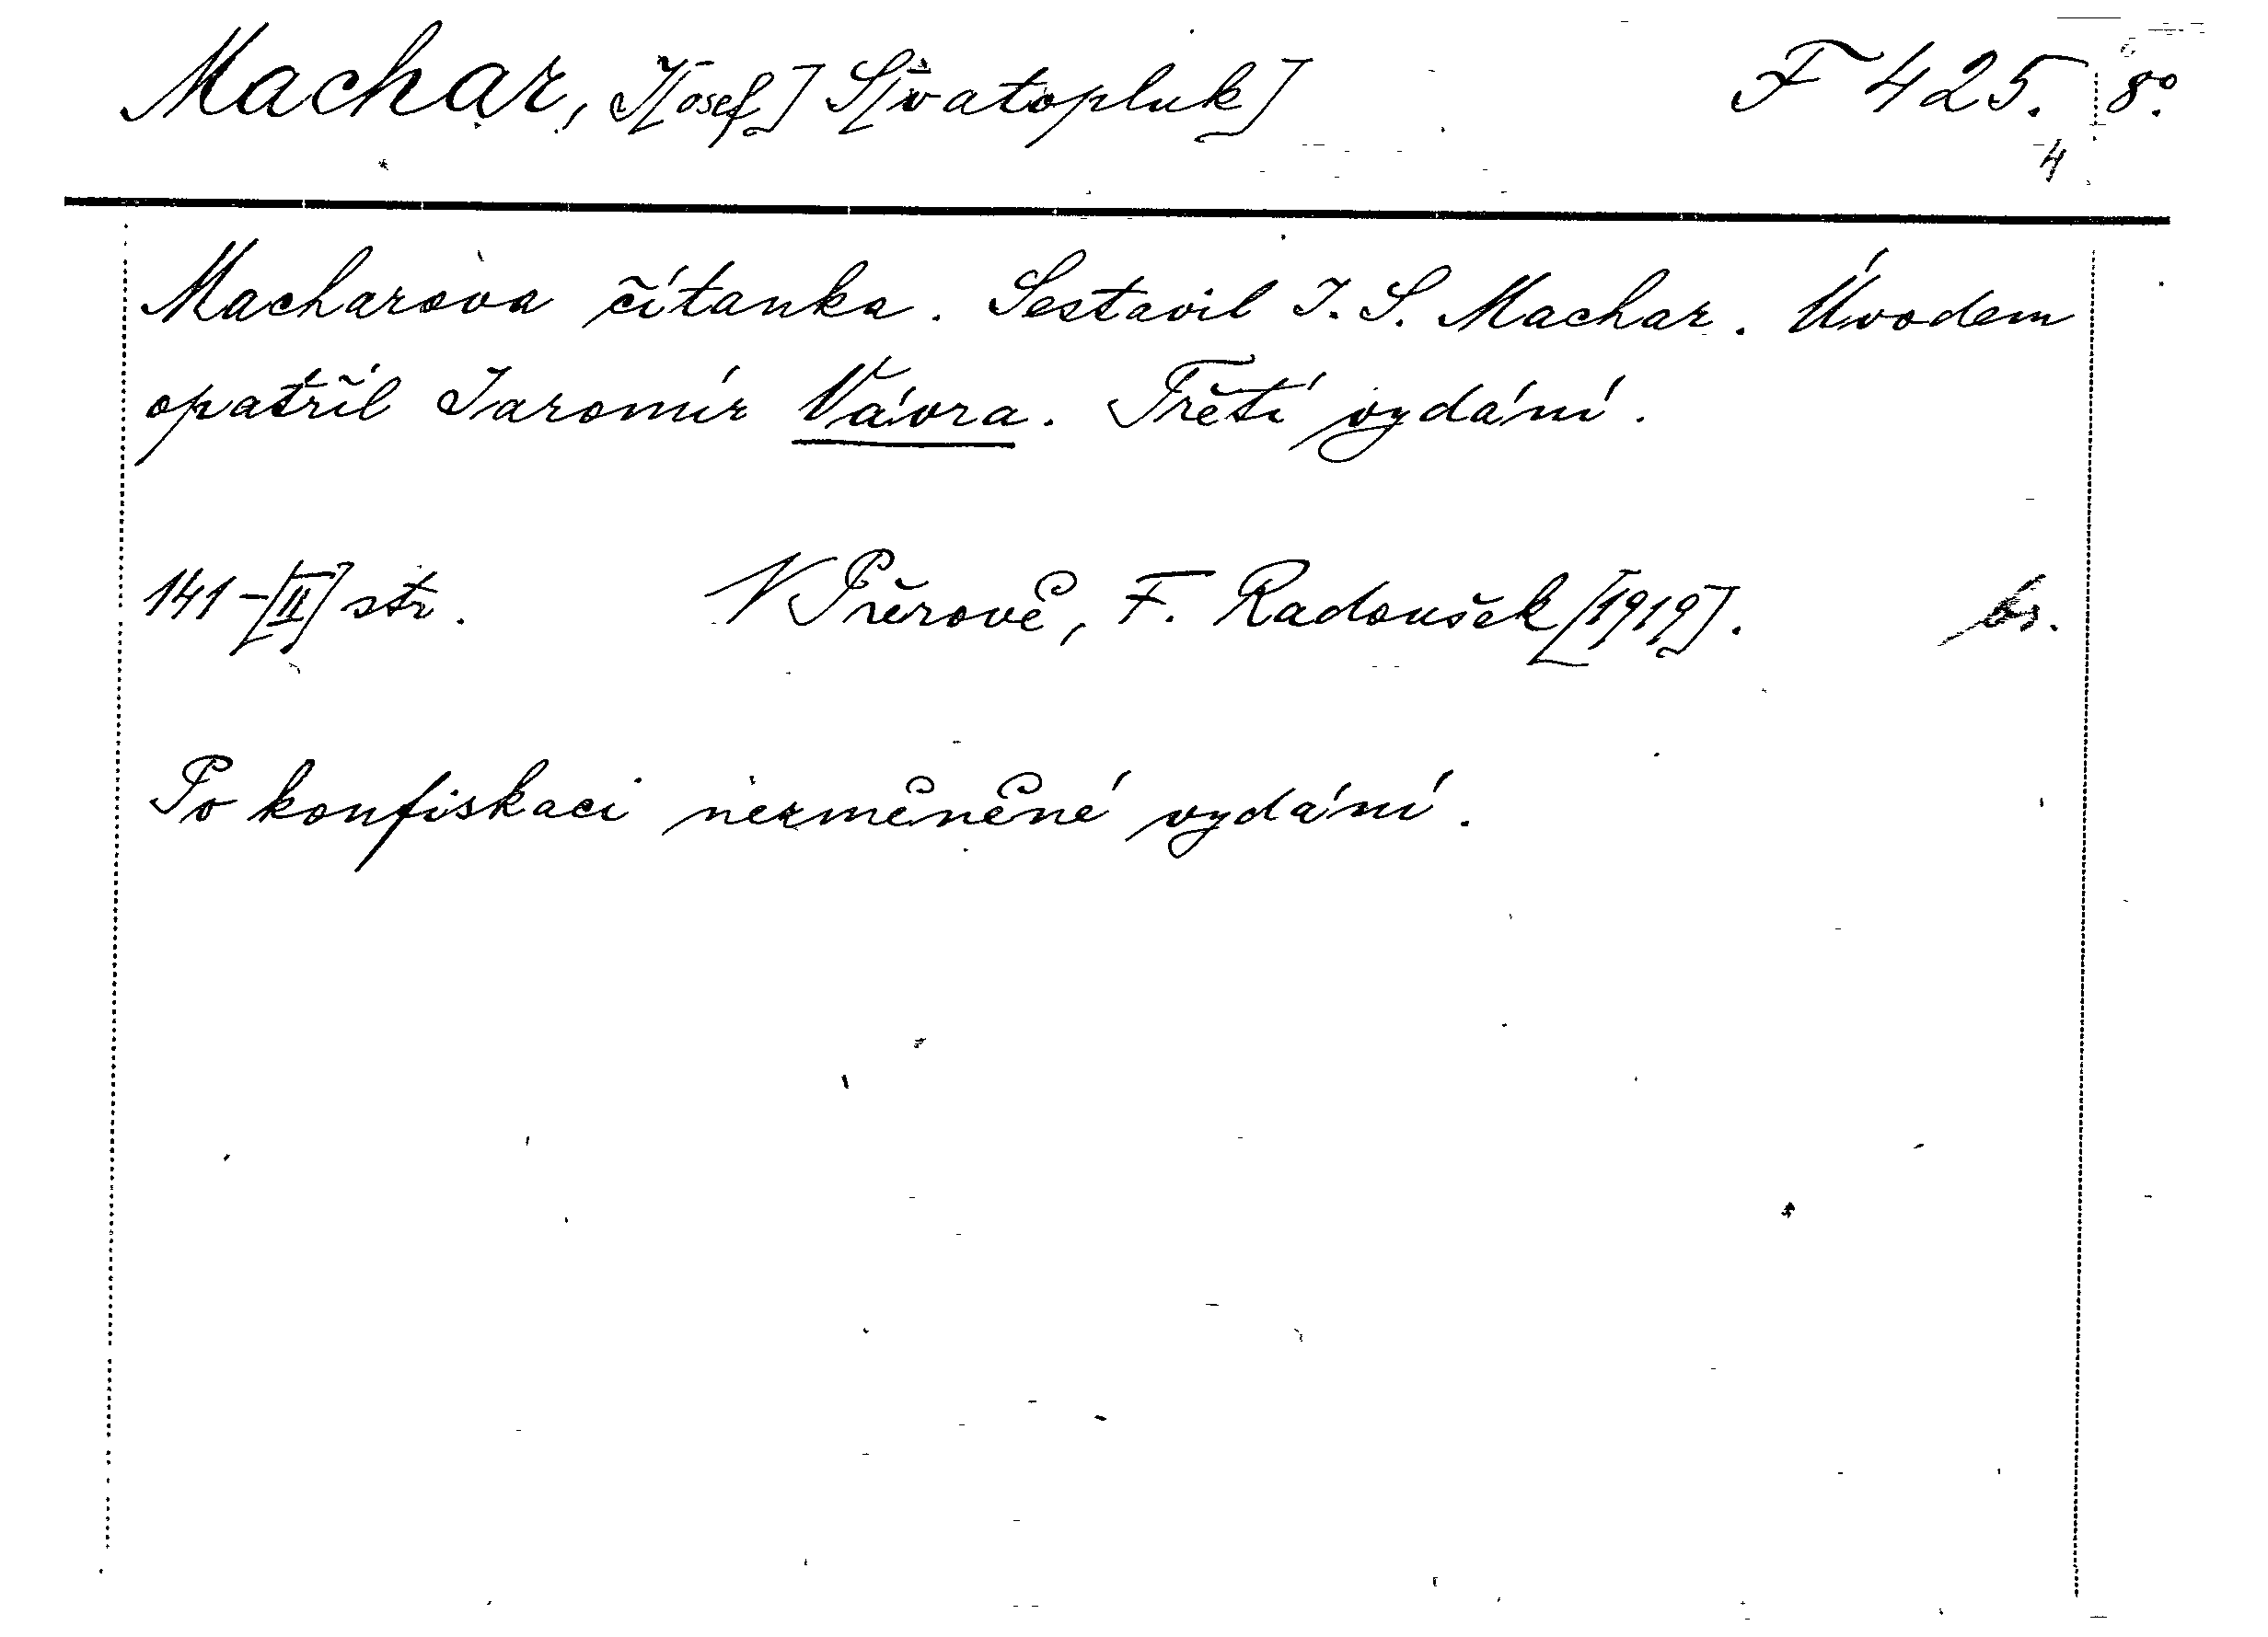 Machar, J[osef] S[vatopluk] F 425. 8°.
4
Macharova čítanka. Sestavil J. S. Machar. Úvodem
opatřil Jaromír Vávra. Třetí vydání.
141-[II] str. V Přerově, F. Radoušek [1919]. br.
Po konfiskaci nezměněné vydání.